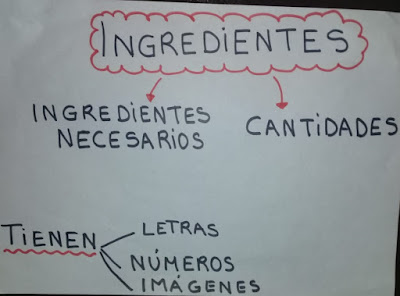 INGREDIENTES
INGREDIENTES
NECESARIOS
CANTIDADES
TIENEN
LETRAS
NÚMEROS
IMÁGENES